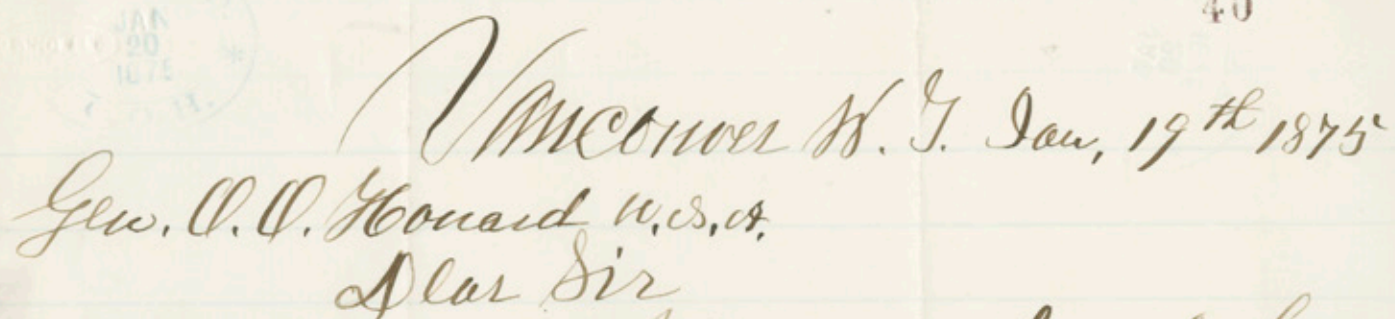 40
JAN
20
1875
Vancouver W. T. Jan, 19th 1875
Gen. O. O. Howard U.S.A.
Dear Sir